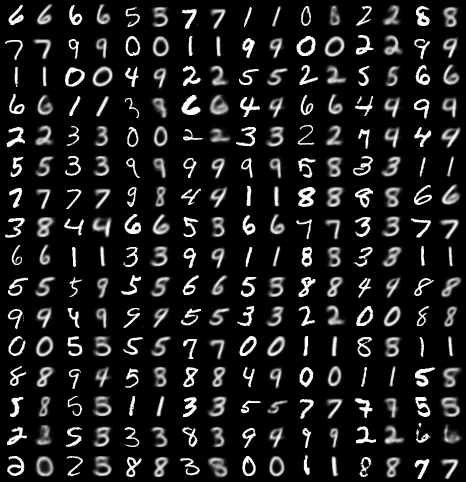 6 6 6 6 5 5 7 7 1 1 0 8 2 2 8 8
7 7 9 9 0 0 1 1 9 9 0 0 2 2 9 9
1 1 0 0 4 9 2 2 5 5 2 2 5 5 6 6
6 6 1 1 3 8 6 6 4 9 6 6 4 9 9 9
2 2 3 3 0 0 2 2 3 3 2 2 7 9 4 9
5 5 3 3 9 9 9 9 9 9 5 8 3 3 1 1
7 7 7 7 9 8 4 9 1 1 8 8 8 8 6 6
3 8 4 4 6 6 5 3 6 6 7 7 3 3 7 7
6 6 1 1 3 3 9 9 1 1 8 8 3 3 1 1
5 5 5 9 5 5 6 6 5 3 8 8 4 9 8 8
9 9 4 9 9 9 5 5 3 3 2 2 0 0 8 8
0 0 5 5 5 5 7 7 0 0 1 1 8 8 1 1
8 8 9 4 5 8 8 8 4 9 0 0 1 1 5 5
5 8 5 5 1 1 3 3 5 5 7 7 7 7 5 5
2 2 5 3 3 3 8 3 9 9 9 9 2 2 6
2 0 2 5 8 8 3 8 0 0 1 1 8 8 7 7